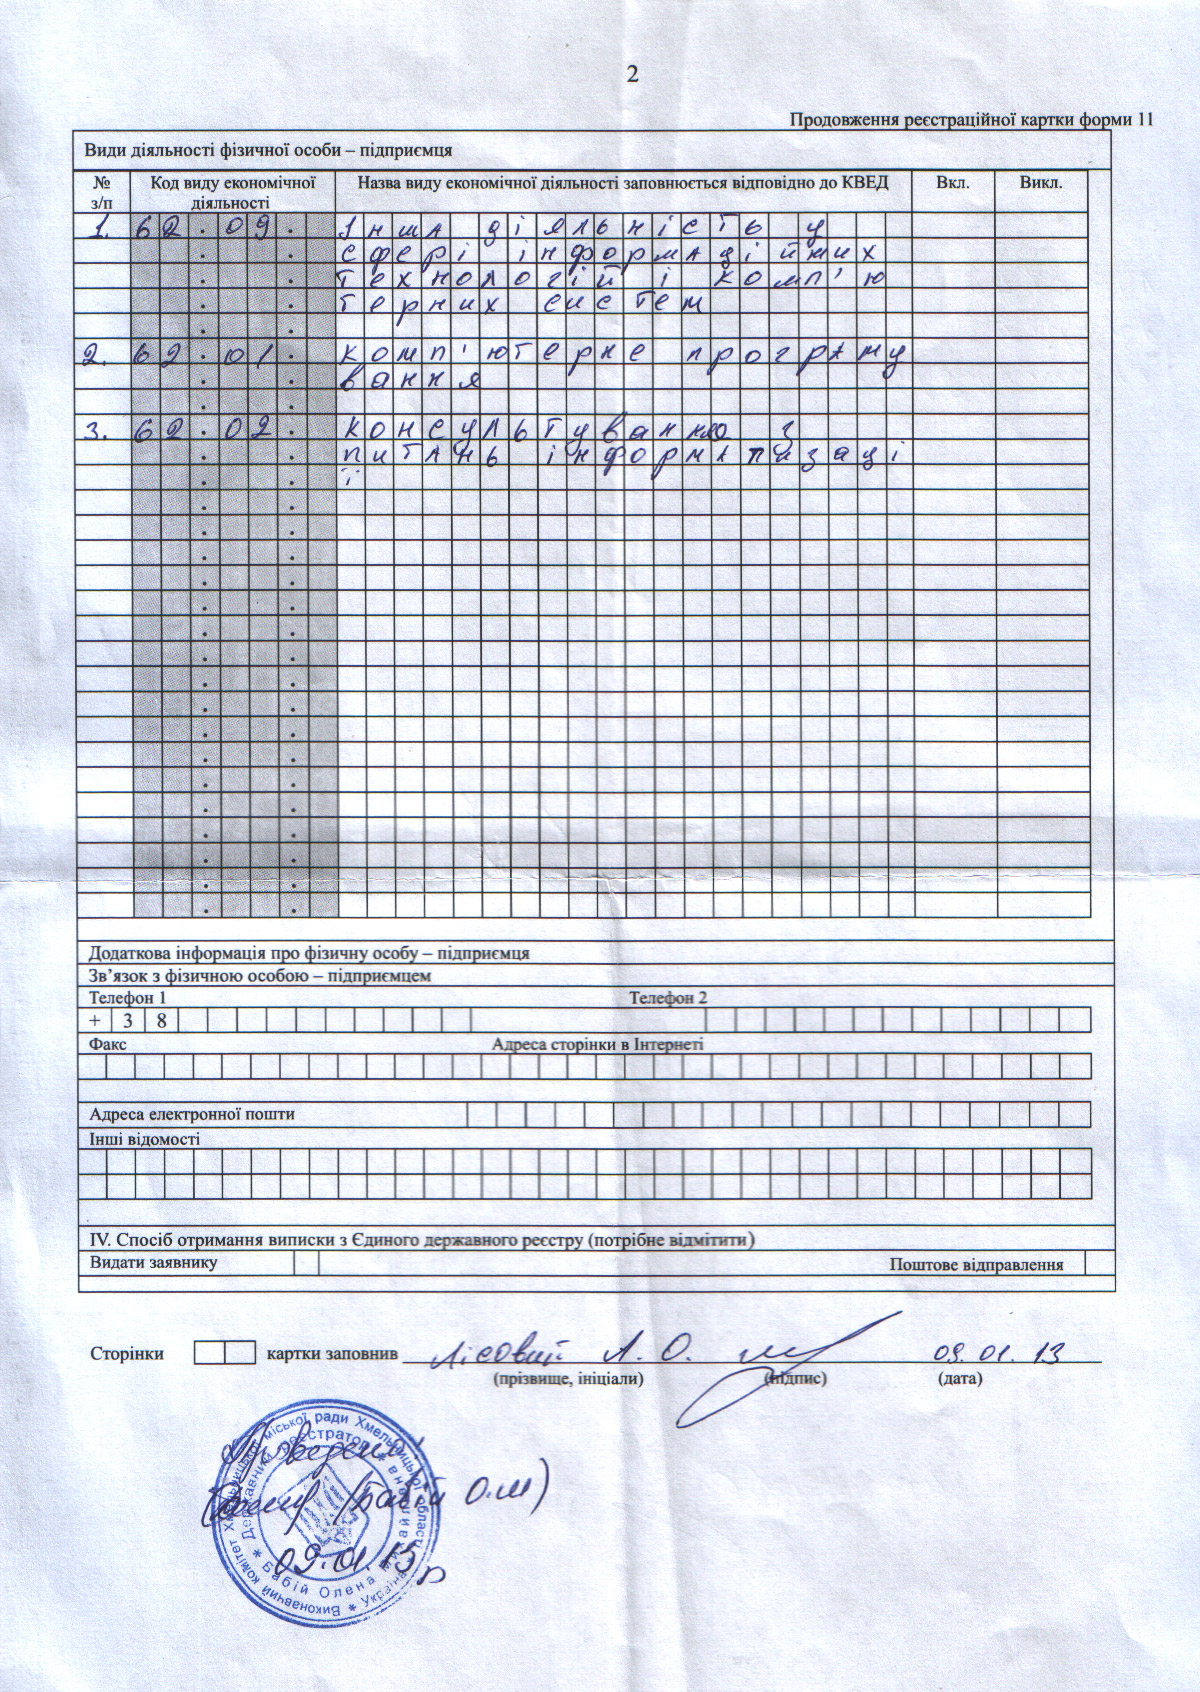 2
Продовження реєстраційної картки форми 11
Види діяльності фізичної особи – підприємця
№ з/п Код виду економічної діяльності Назва виду економічної діяльності заповнюється відповідно до КВЕД Вкл. Викл.
1. 62.09. Інша діяльність у
сфері інформаційних
технологій і комп'ю
терних систем
2. 62.01. комп'ютерне програму
вання
3. 62.02. консультування з
питань інформатизаці
ї
Додаткова інформація про фізичну особу – підприємця
Зв’язок з фізичною особою – підприємцем
Телефон 1 Телефон 2
+ 3 8
Факс Адреса сторінки в Інтернеті
Адреса електронної пошти
Інші відомості
IV. Спосіб отримання виписки з Єдиного державного реєстру (потрібне відмітити)
Видати заявнику Поштове відправлення
Сторінки картки заповнив Лісовий А. О. 09.01.13
(прізвище, ініціали) (підпис) (дата)
Виконавчий комітет Хмельницької міської ради Хмельницької області * Україна *
Державний реєстратор * Бабій Олена Михайлівна *
Проведено
(Бабій О.М)
09.01.13р